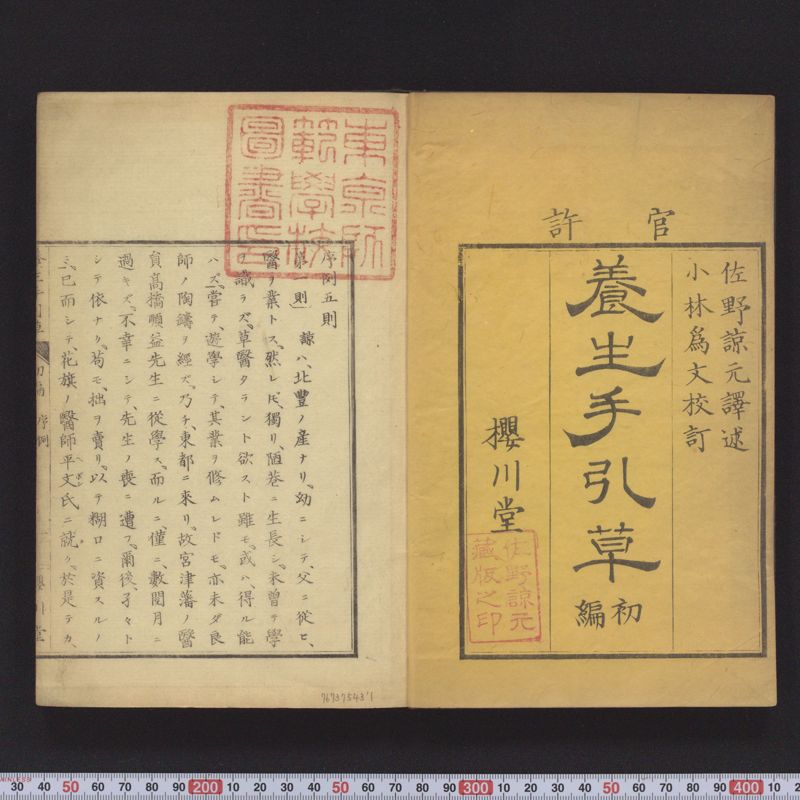 官許
佐野諒元譯述
小林爲文校訂
養生手引草
初編
櫻川堂
佐野諒元
藏版之印
東京師
範學校
圖書印
序例五則
第一則 諒ハ、北豐ノ産ナリ、幼ニシテ、父ニ從ヒ、
醫ヲ業トス、然レ𪜈、獨リ、陋巷ニ生長シ、未曽テ學
ヲ識ラズ、草醫タラント欲スト雖モ、或ハ、得ル能
ハズ、嘗テ、遊學シテ、其業ヲ修ムレドモ、亦未ダ良
師ノ陶鑄ヲ經ズ、乃チ、東都ニ來リ、故宮津藩ノ醫
員高橋順益先生ニ從學ス、而ルニ、僅ニ、數閲月ニ
過キズ、不幸ニシテ、先生ノ喪ニ遭フ、爾後、孑々ト
シテ依ナク、苟モ、拙ヲ賣リ、以テ糊口ニ資スルノ
ミ、已而シテ、花旗ノ醫師平文氏ニ就ク、於是テカ、
初編 序例
櫻川堂
76737543'1
30 40 50 60 70 80 90 200 10 20 30 40 50 60 70 80 90 300 10 20 30 40 50 60 70 80 90 400 10